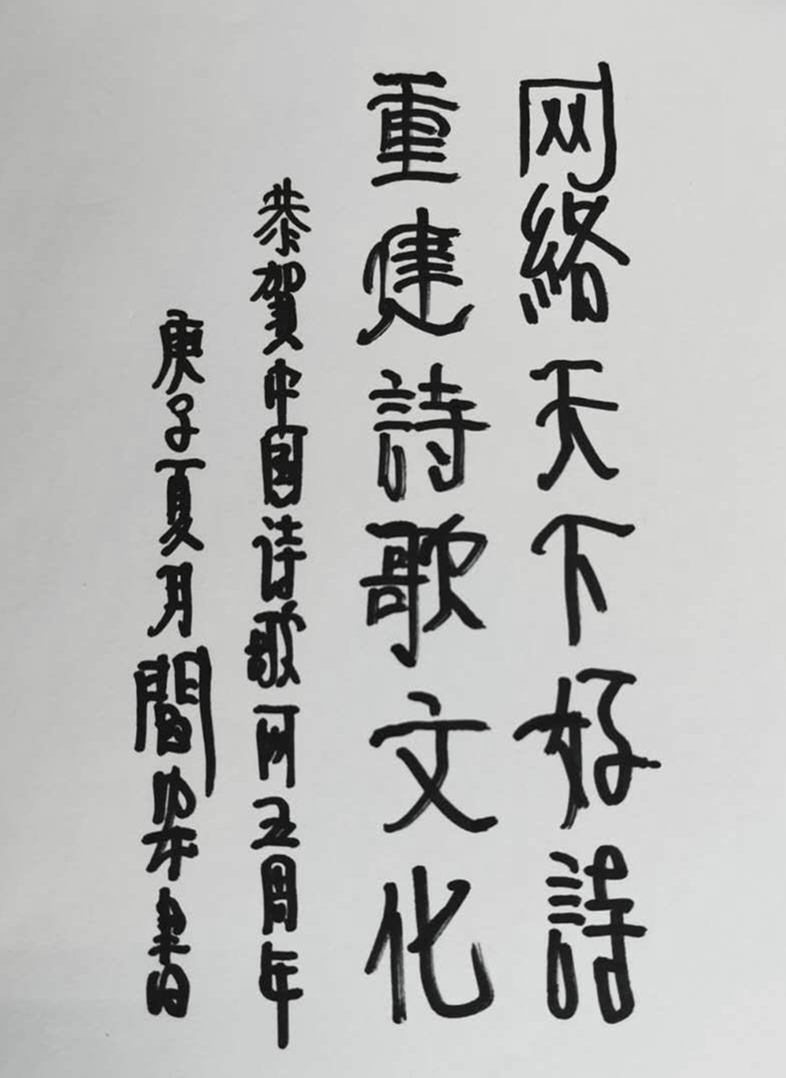 网絡天下好詩
重建詩歌文化
恭賀中国诗歌网五周年
庚子夏月閻書